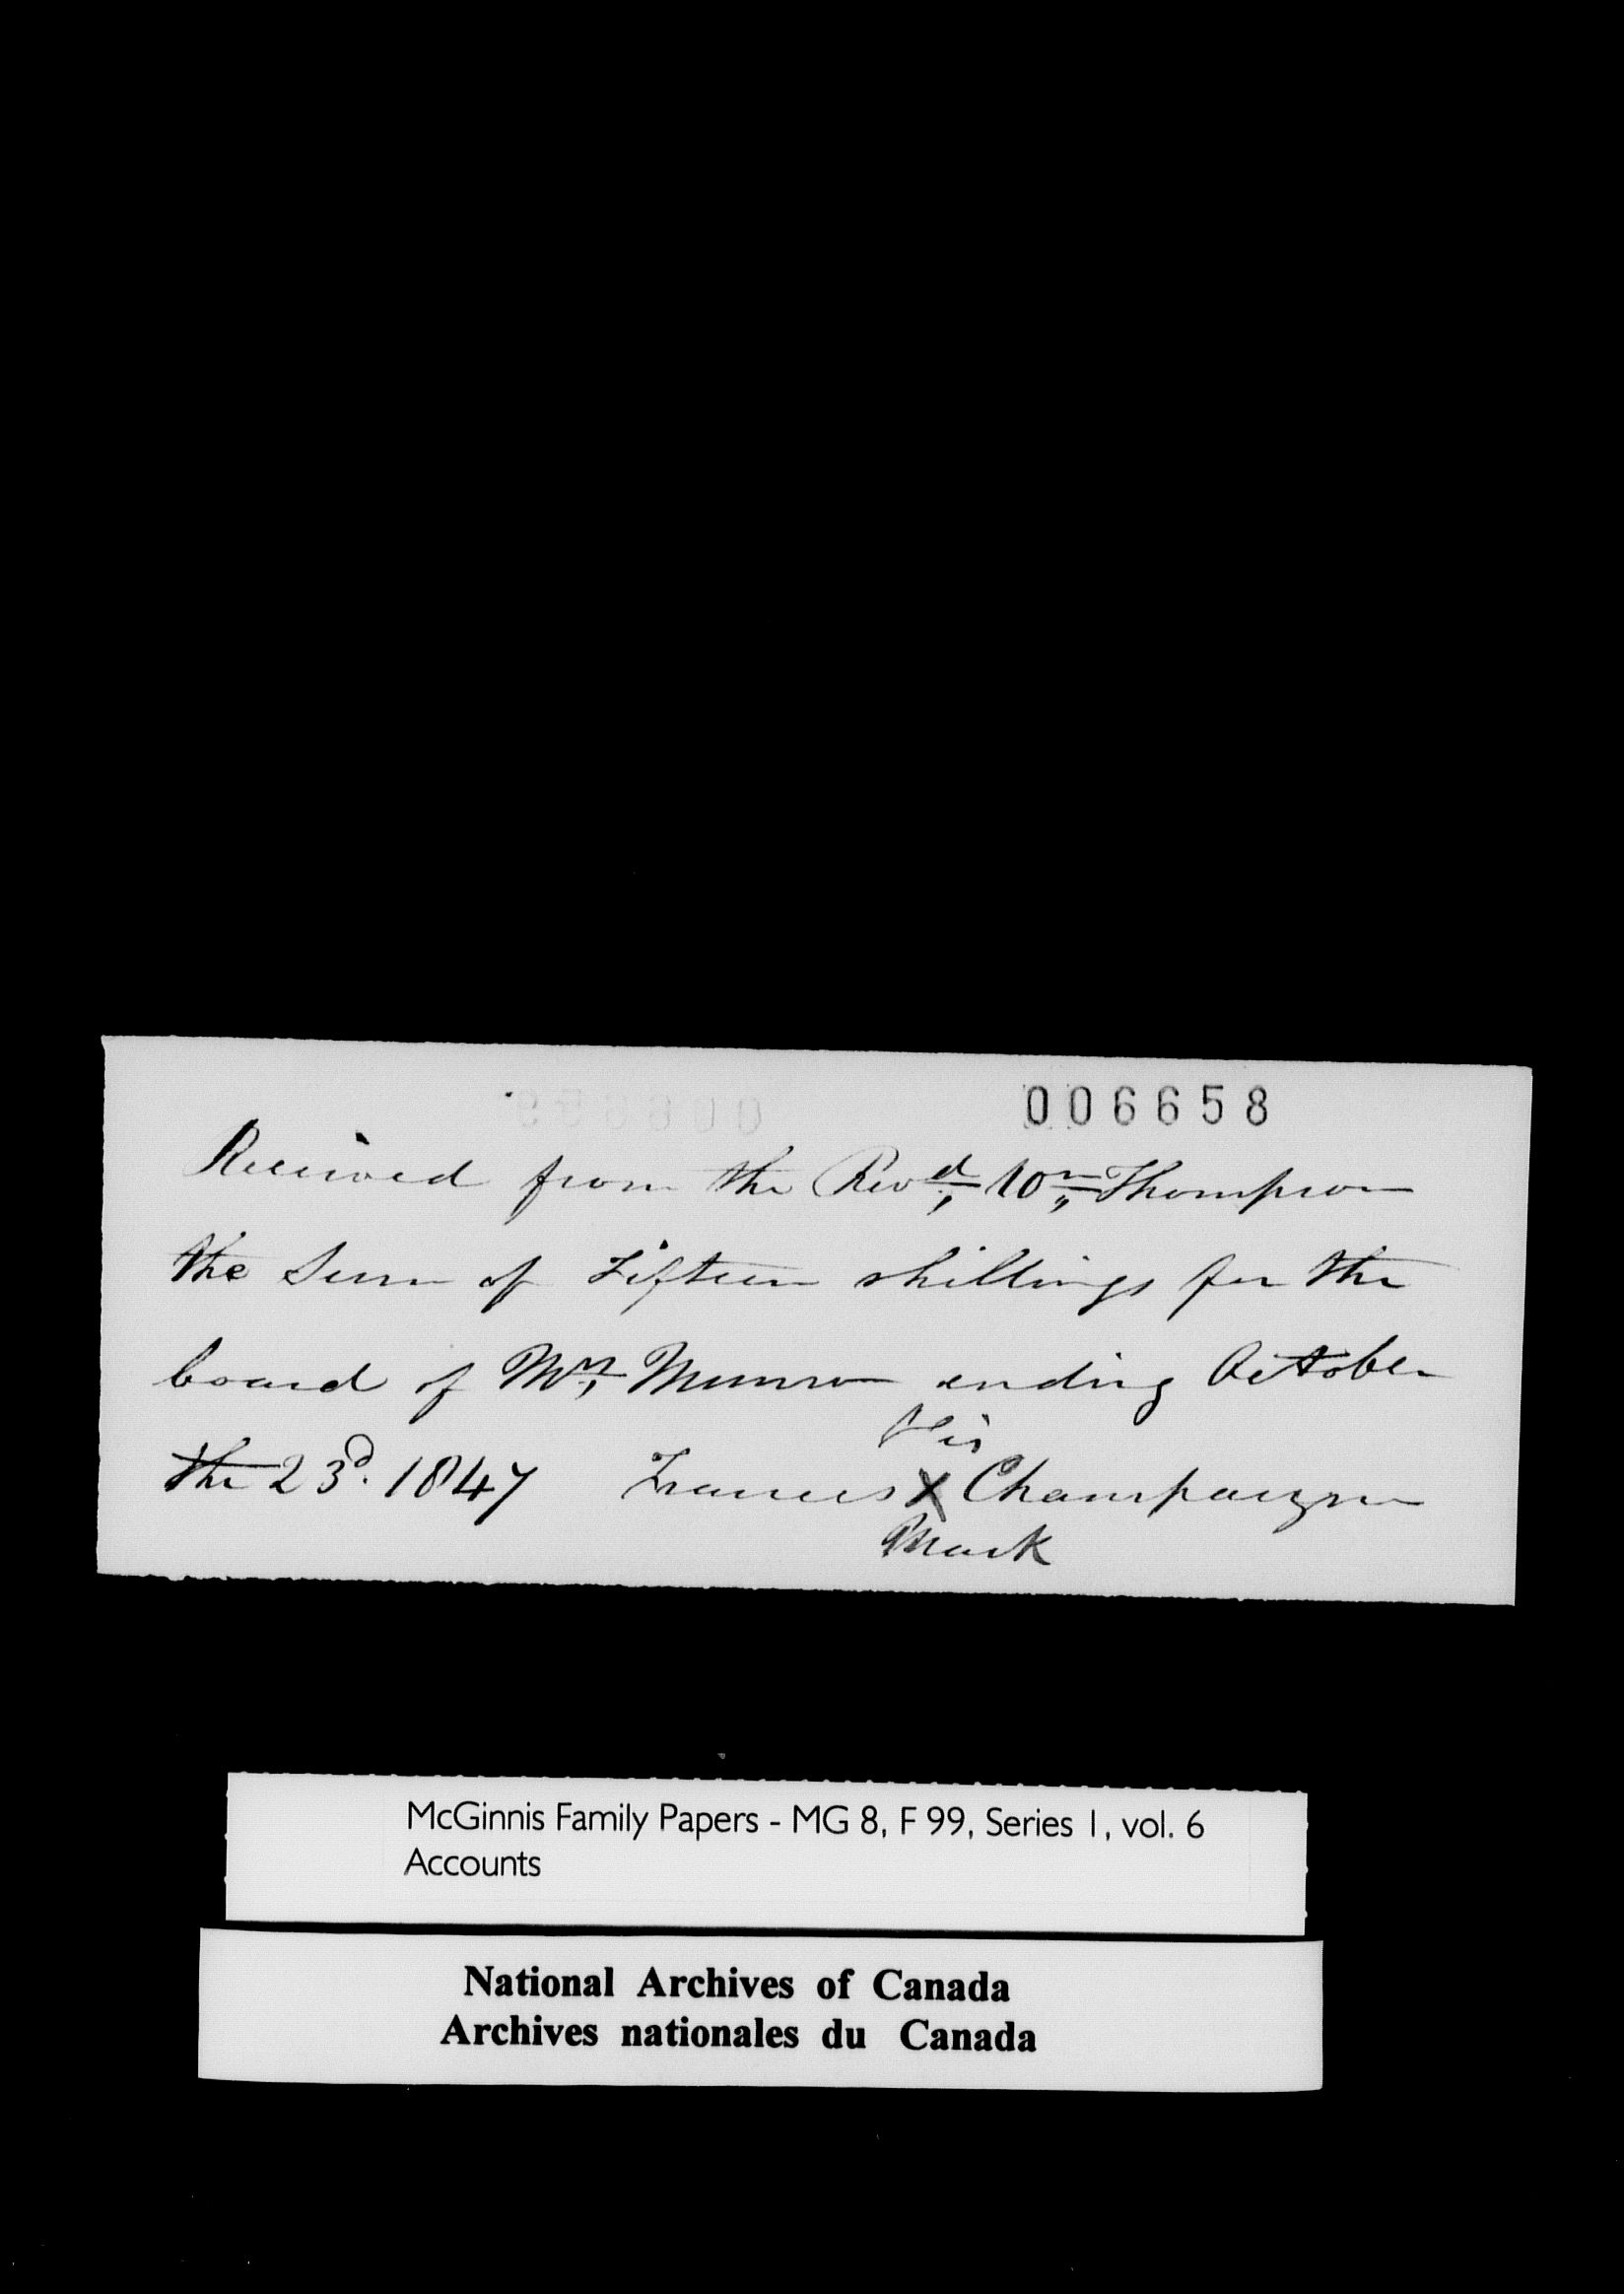 006658
Received from the Revd, Wm,, Thompson
the Sum of Fifteen shillings for the
board of Mr, Munro ending October
the 23d. 1847 Frances X Champaigne
His
Mark
McGinnis Family Papers - MG 8, F 99, Series 1, vol. 6
Accounts
National Archives of Canada
Archives nationales du Canada